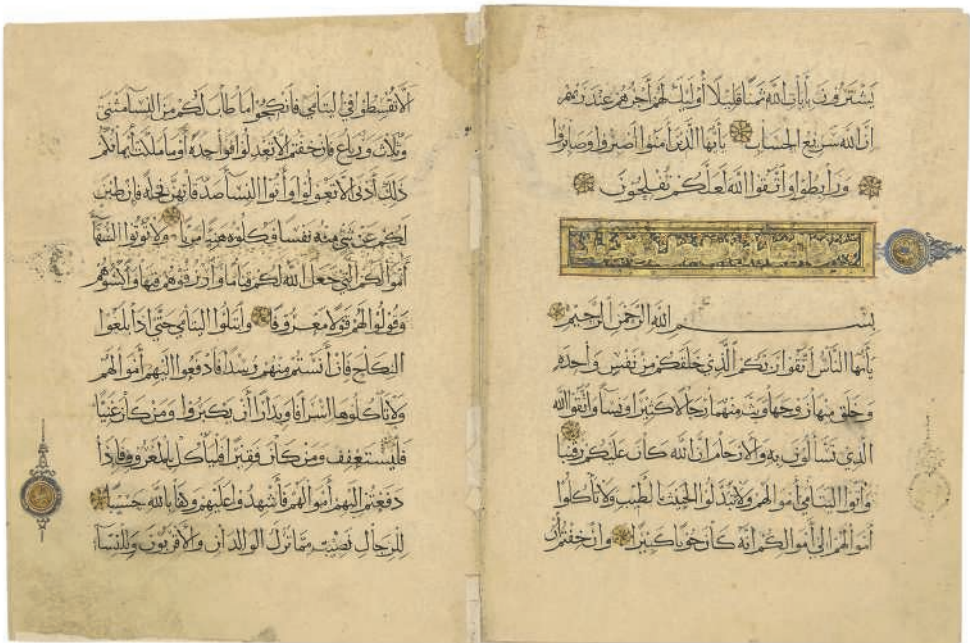 يشترون بآيات الله ثمنا قليلا أوليك لهم أجرهم عند ربهم
ان الله سريع الحساب يأيها الذين آمنوا اصبروا وصابروا
ورابطوا واتقوا الله لعلكم تفلحون
بسم الله الرحمن الرحيم
يأيها الناس اتقوا ربكم الذي خلقكم من نفس واحدة
وخلق منها زوجها وبث منهما رجالا كثيرا ونسآ واتقوا الله
الذي تسآلون به والارحام ان الله كان عليكم رقيبا
وآتوا اليتامي أموالهم ولا تتبدلوا الخبيث بالطيب ولا تأكلوا
أموالهم الي أموالكم انه كان حوبا كبيرا وان خفتم أن
لا تقسطوا في اليتامي فانكحوا ما طاب لكم من النسآ مثني
وثلاث ورباع فان خفتم الا تعدلوا فواحدة أو ما ملكت أيمانكم
ذلك أدني الا تعولوا وآتوا النسآ صدقاتهن نحلة فان طبن
لكم عن شي منه نفسا فكلوه هنيا مريا ولا تؤتوا السفهآ
أموالكم التي جعل الله لكم قياما وارزقوهم فيها واكسوهم
وقولوا لهم قولا معروفا وابتلوا اليتامي حتي اذا بلغوا
النكاح فان آنستم منهم رشدا فادفعوا اليهم أموالهم
ولا تأكلوها اسرافا وبدارا أن يكبروا ومن كان غنيا
فليستعفف ومن كان فقيرا فليأكل بالمعروف فاذا
دفعتم اليهم أموالهم فأشهدوا عليهم وكفا بالله حسيبا
للرجال نصيب مما ترك الوالدان والاقربون وللنسآ